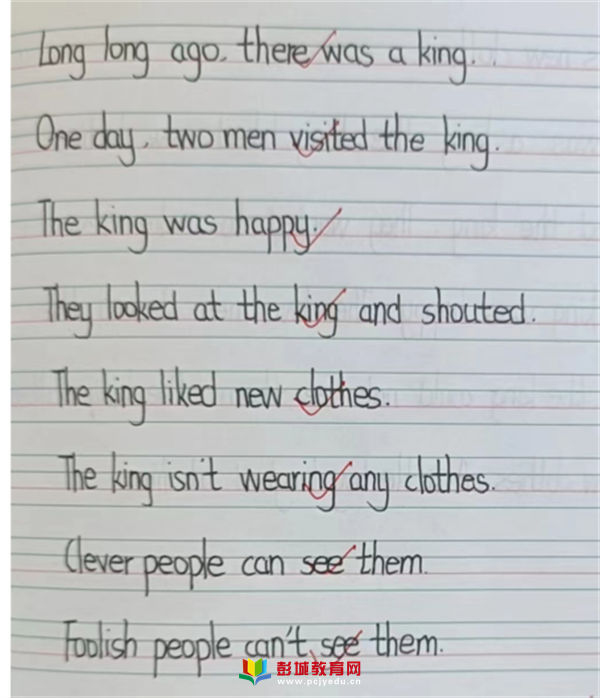 Long long ago, there was a king.
One day, two men visited the king.
The king was happy.
They looked at the king and shouted.
The king liked new clothes.
The king isn't wearing any clothes.
Clever people can see them.
Foolish people can't see them.
彭城教育网
www.pcjyedu.cn